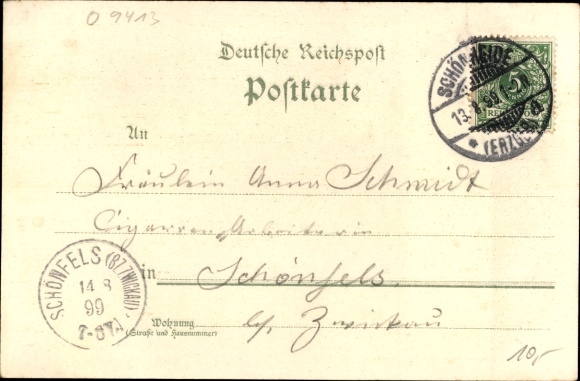 O 9413
Deutsche Reichspost
Postkarte
SCHÖNHEIDE
13. 99
(ERZGEB.)
5
An
Fräulein Anna Schmidt
Cigarren Arbeiterin
in Schönfels
b/ Zwickau
SCHÖNFELS (BZ. ZWICKAU)
14 8
99
7-8V.
Wohnung
(Straße und Hausnummer)
10,-